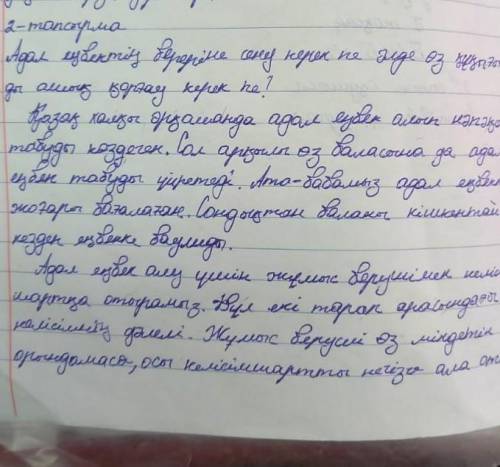 2-тапсырма
Адал еңбектің берері не сену керек пе әлде өз құқығы
ды ашық қорғау керек пе?
Қазақ халқы әрқашанда адал еңбек алып нәпақа
табуды көздеген. Сол арқылы өз баласына да адал
еңбек табуды үйретеді. Ата-бабамыз адал еңбекті
жоғары бағалаған. Сондықтан баланы кішкентай
кезден еңбекке баулиды.
Адал еңбек алу үшін жұмыс берушімен келісім
шартқа отырамыз. Бұл екі тарап арасындағы
келісімнің дәлелі. Жұмыс беруші өз міндетін
орындамаса, осы келісімшартты негізге ала от